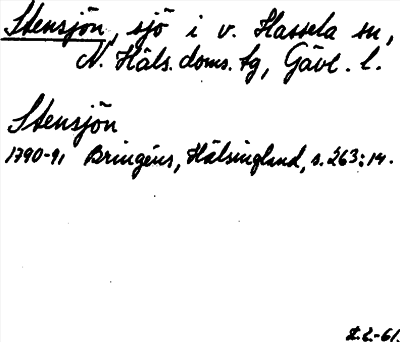 Stensjön, sjö i v. Hassela sn,
N. Häls. doms. tg, Gävl. l.
Stensjön
1790-91 Bringéus, Hälsingland, s. 263:14.
-61.